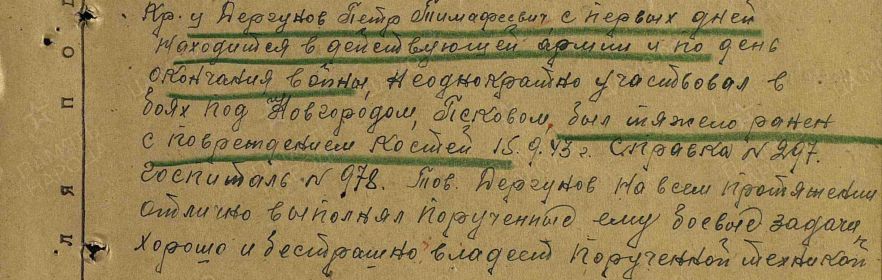 Кр. ц Дергунов Петр Тимафеевич, с первых дней
находится в действующей армии и по день
окончания войны, неоднократно участвовал в
боях под Новгородом, Псковом, был тяжело ранен
с повреждением костей 15.9.43 г. Справка N 297.
Госпиталь N 978. Тов. Дергунов на всем протяжении
отлично выполнял порученные ему боевые задачи,
хорошо и бестрашно владеет порученной техникой
Л Я П О